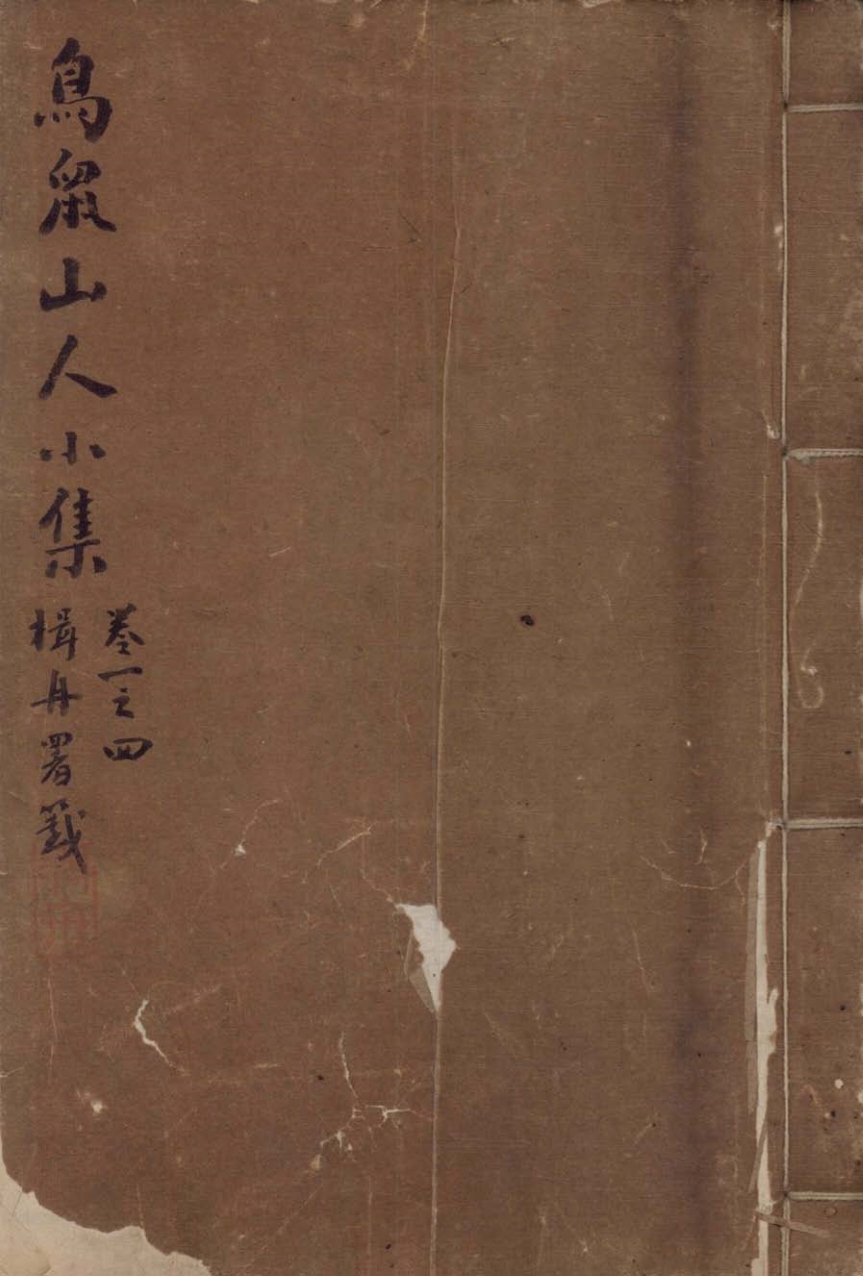 鳥鼠山人小集
卷一之四
楫舟署籤